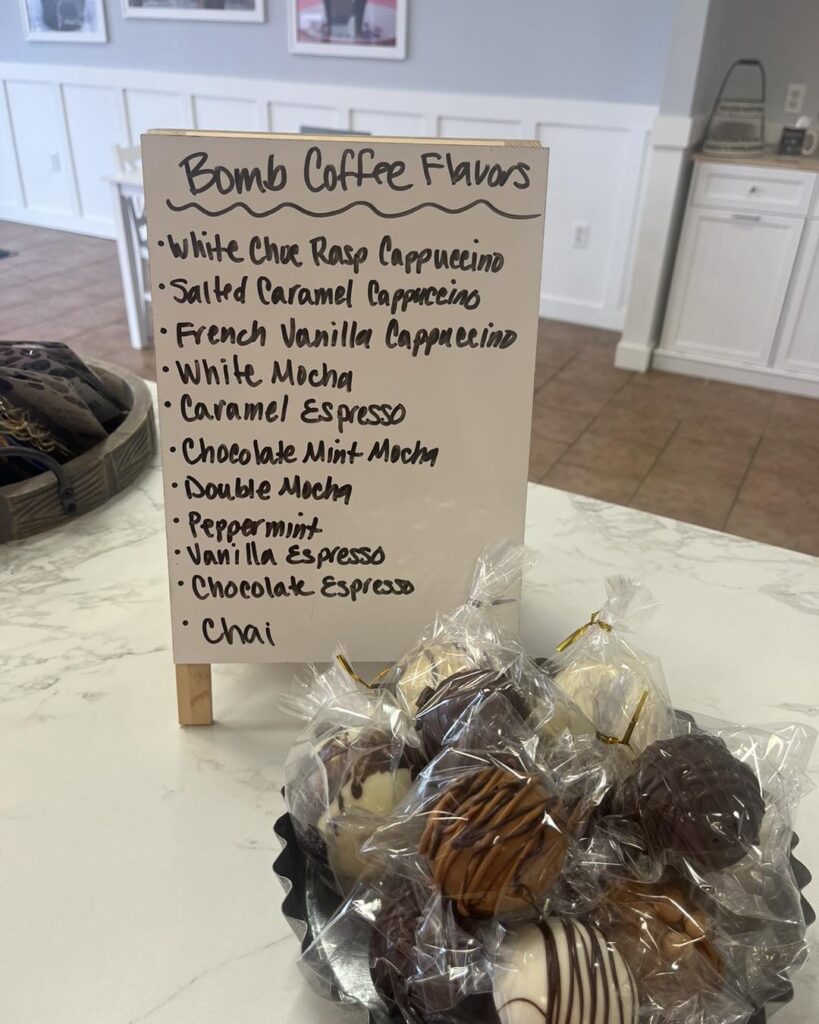 Bomb Coffee Flavors
• White Choc Rasp Cappuccino
• Salted Caramel Cappuccino
• French Vanilla Cappuccino
• White Mocha
• Caramel Espresso
• Chocolate Mint Mocha
• Double Mocha
• Peppermint
• Vanilla Espresso
• Chocolate Espresso
• Chai